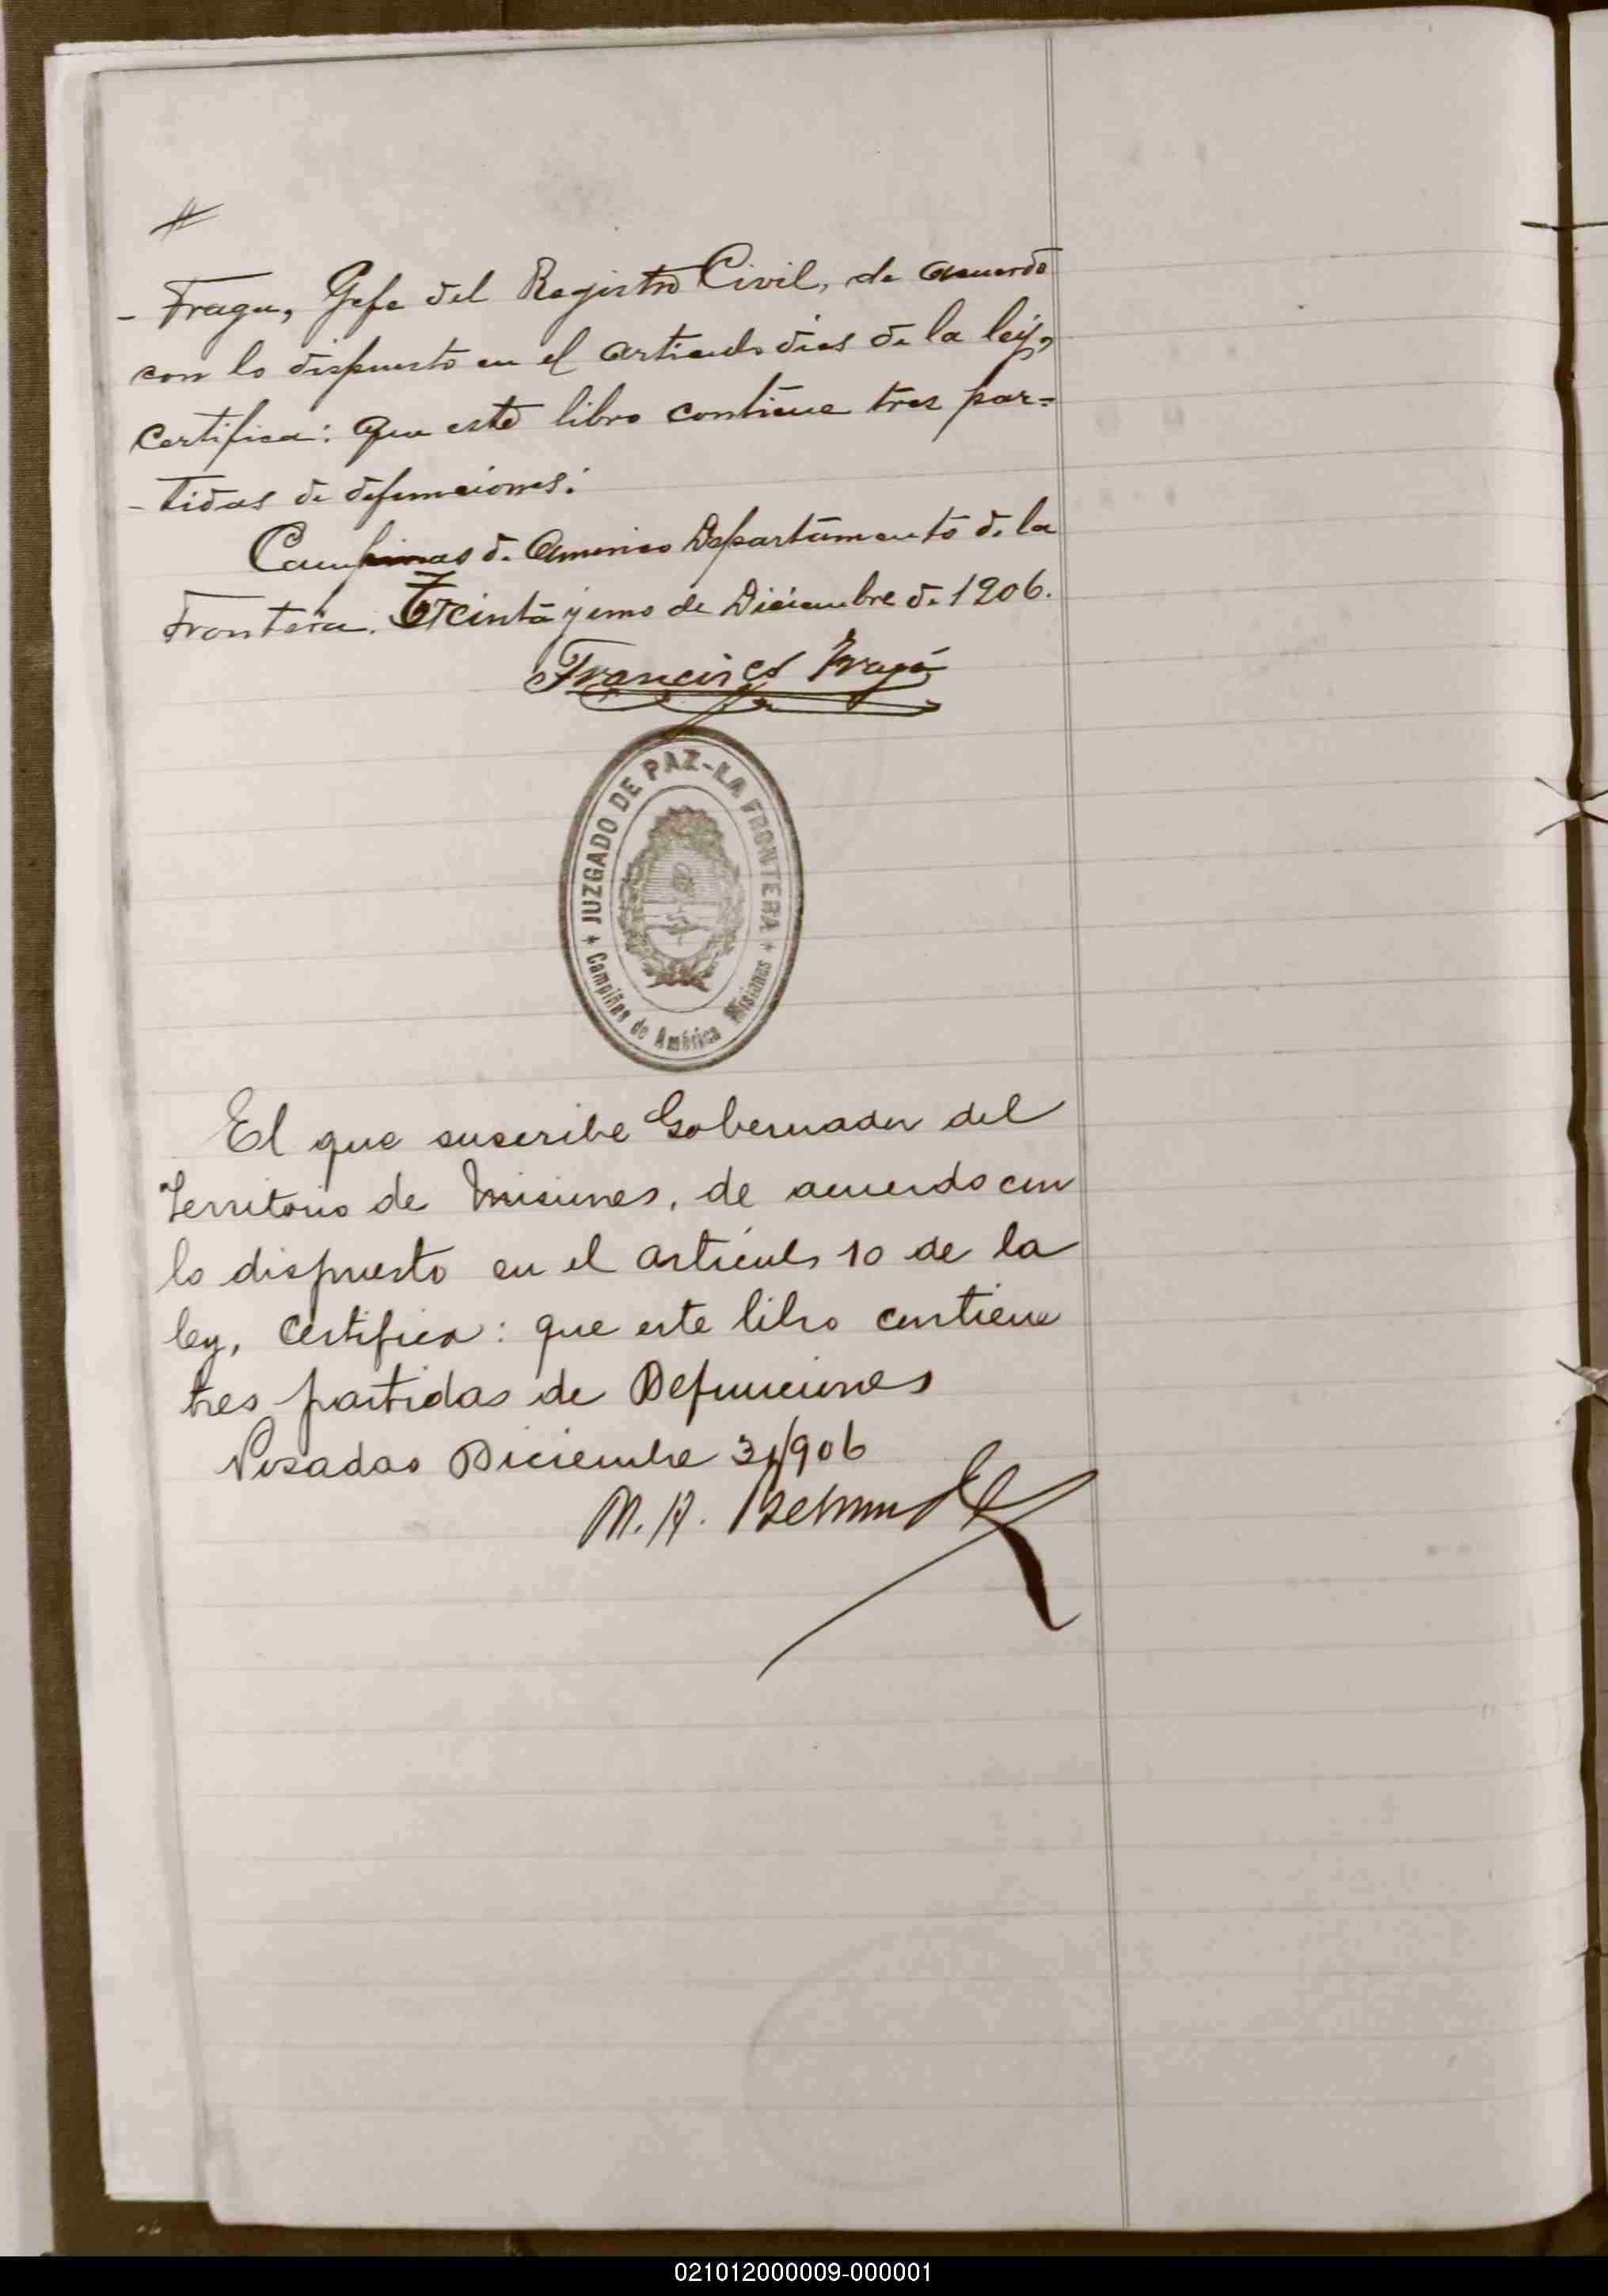 - Fraga, Gefe del Registro Civil, de acuerdo
con lo dispuesto en el articulo dies de la ley,
certifica: que este libro contiene tres par=
- tidas de defunciones.
Campinas de America Departamento de la
Frontera. Treinta y uno de Diciembre de 1906.
Francisco Fraga
JUZGADO DE PAZ-LA FRONTERA
Campiñas de América Misiones
El que suscribe Gobernador del
Territorio de Misiones, de acuerdo con
lo dispuesto en el artículo 10 de la
ley, Certifica: que este libro contiene
tres partidas de Defunciones
Posadas Diciembre 31/906
M. A.
021012000009-000001